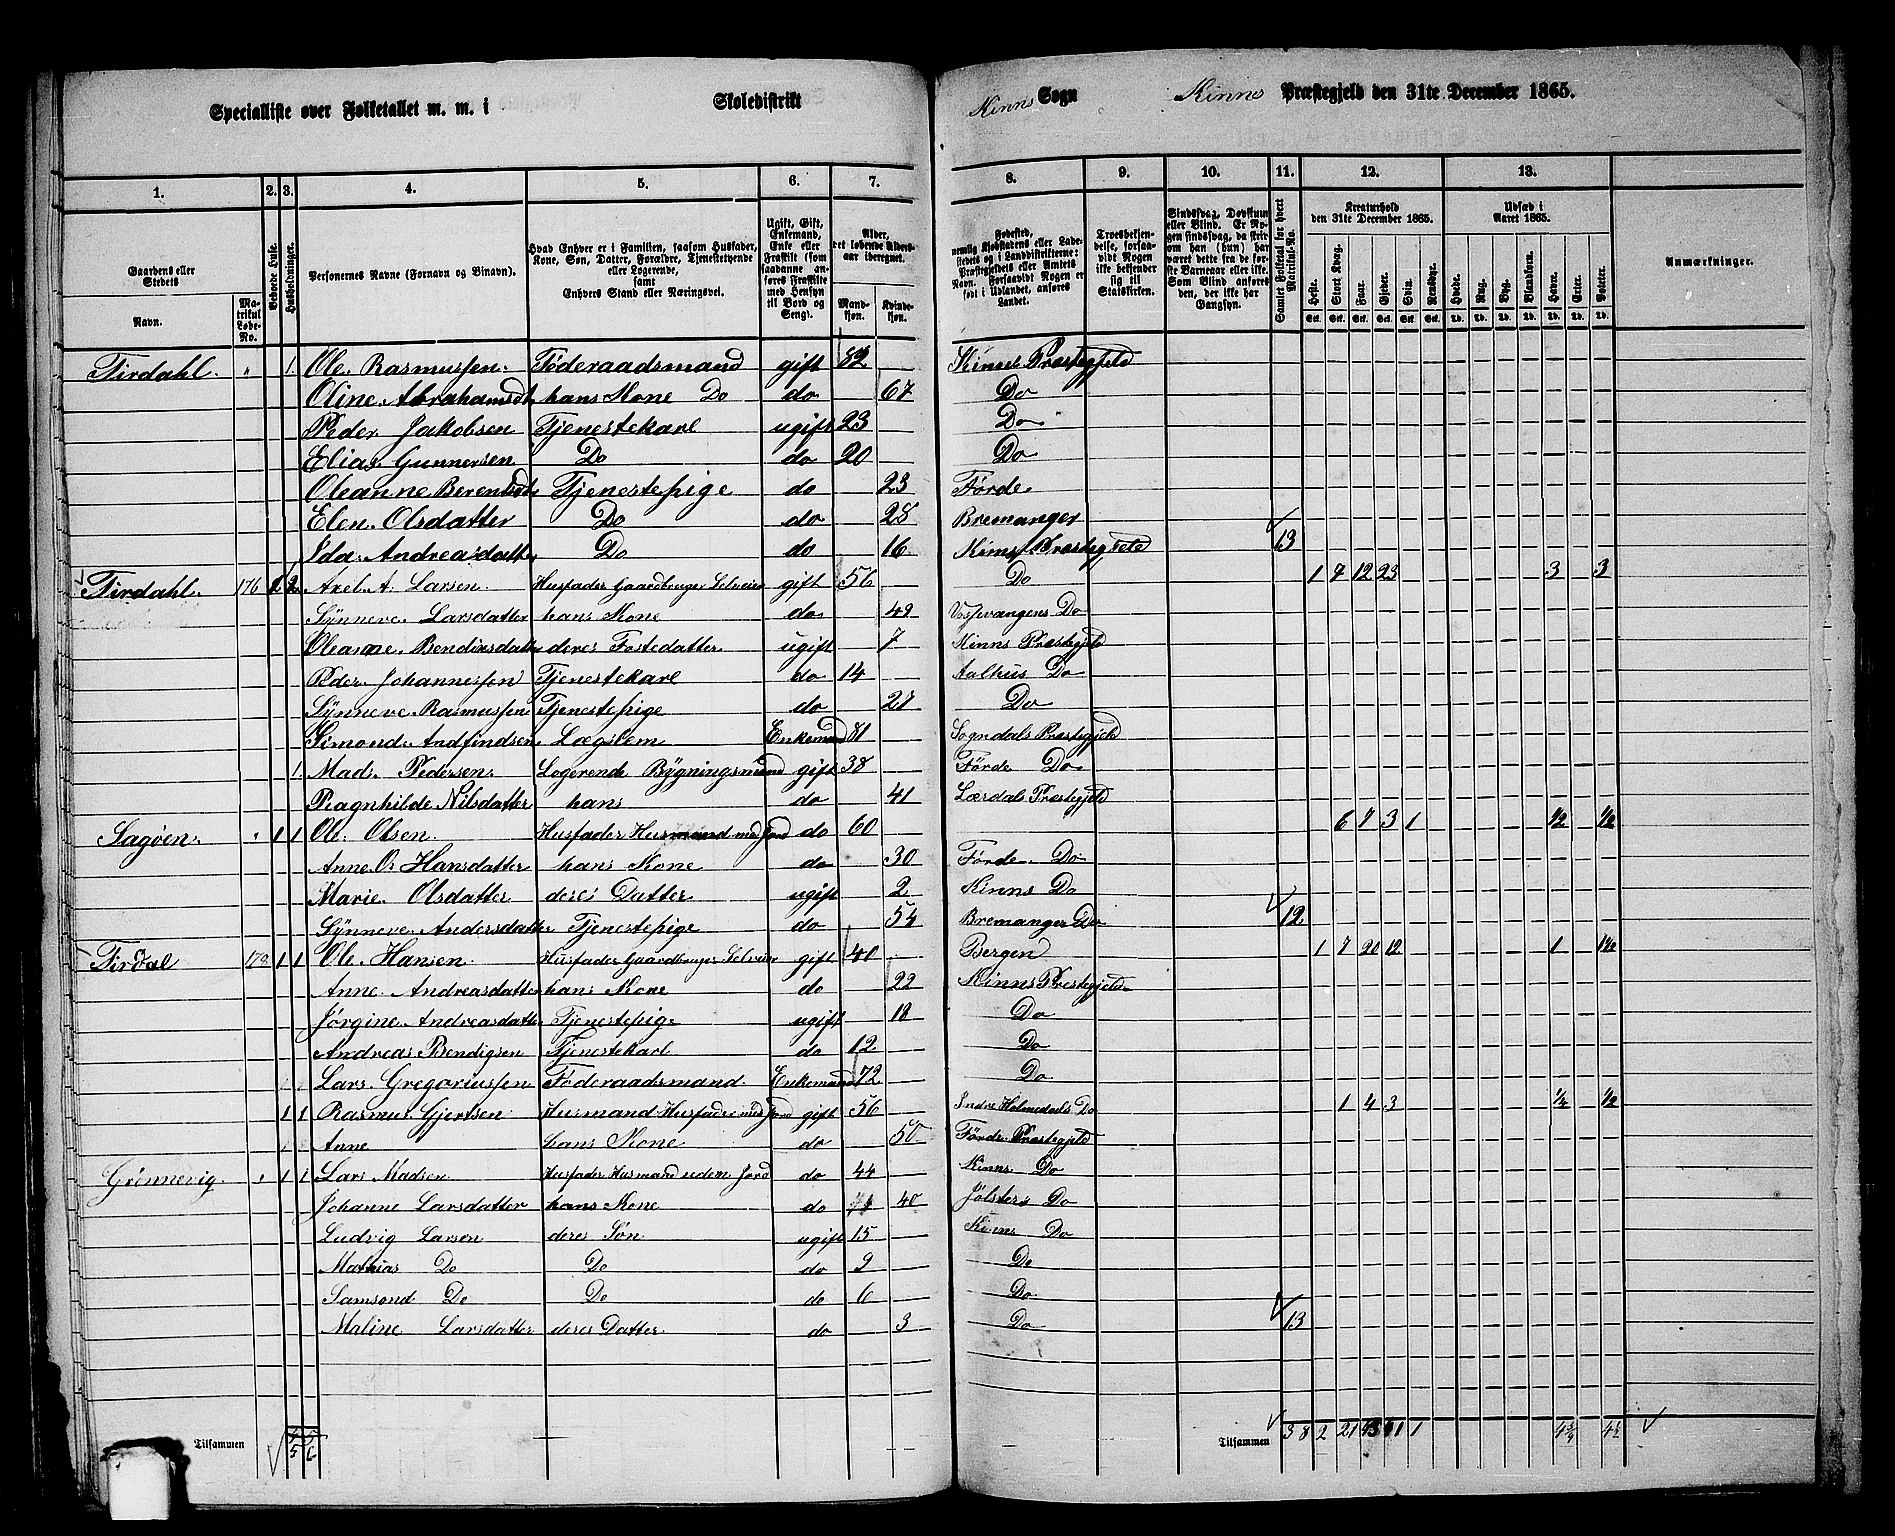 Specialliste over Folketallet m. m. i Skoledistrikt Kinns Sogn Kinns Præstegjeld den 31te December 1865.
1. 2. 3. 4. 5. 6. 7. 8. 9. 10. 11. 12. 13.
Gaardens eller Stedets Navn. Matrikul Løbe-No. Beboede Huse. Husholdninger. Personernes Navne (Fornavn og Binavn). Hvad Enhver er i Familien, saasom Husfader, Kone, Søn, Datter, Forældre, Tjenestetyende eller Logerende, samt Enhvers Stand eller Næringsvei. Ugift, Gift, Enkemand, Enke eller Fraskilt (som saadanne anføres Fraskilte med Hensyn til Bord og Seng). Alder, det løbende Alders-aar iberegnet. Mandkjøn. Kvindekjøn.
Fødested, nemlig Kjøbstadens eller Ladestedets og i Landdistrikterne: Præstegjeldets eller Amtets Navn. Forsaavidt Nogen er født i Udlandet, anføres Landet. Troesbekjendelse, forsaavidt Nogen ikke bekjender sig til Statskirken. Sindssvag, Døvstum eller Blind. Samlet Folketal for hvert Matrikul-No. Kreaturhold den 31te December 1865. Udsæd i Aaret 1865. Anmærkninger.
Heste. Stort Kvæg. Faar. Gjeder. Svin. Rensdyr. Hvede. Rug. Byg. Blandkorn. Havre. Erter. Poteter.
Tirdahl. " 1. Ole Rasmussen. Føderaadsmand gift 82 Kinns Præstegjeld
Oline Abrahamsdt hans Kone Do do 67 Do
Peder Jakobsen Tjenestekarl ugift 23 Do
Elias Gunnersen Do do 20 Do
Oleanne Berentsdt Tjenestepige do 23 Førde
Elen Olsdatter Do do 28 Bremanger
Ida Andreasdatter Do do 16 Kinns Præstegjeld 13
Tirdahl. 176 2 Axel A. Larsen. Husfader Gaardbruger Selveier gift 56 Do 1 7 12 23 3 3
Synneve Larsdatter hans Kone do 49 Vossevangens Do
Oleanne Bendixsdatter deres Fostedatter ugift 7 Kinns Præstegjeld
Peder Johannessen Tjenestekarl do 14 Aalhus Do
Synneve Rasmussen Tjenestepige do 27 Do
Simond Andfindsen Lægslem Enkemand 81 Sogndals Præstegjeld
1 Mads Pedersen Logerende Bygningsmand gift 38 Førde Do
Ragnhilde Nilsdatter hans do 41 Lærdals Præstegjeld
Sagøen. " 1 1 Ole Olsen. Husfader Husmand med Jord do 60 6 7 3 1 1/2 1/2
Anne O. Hansdatter hans Kone do 30 Førde Do
Marie Olsdatter deres Datter ugift 2 Kinns Do
Synneve Andersdatter Tjenestepige do 54 Bremanger Do 12
Tirdal 178 1 1 Ole Hansen. Husfader Gaardbruger Selveier gift 40 Bergen 1 7 20 12 1 1 1/2
Anne Andreasdatter hans Kone do 22 Kinns Præstegjeld
Jørgine Andreasdatter Tjenestepige ugift 18 Do
Andreas Bendigsen Tjenestekarl do 12 Do
Lars Gregoriussen Føderaadsmand. Enkemand 72 Do
1 1 Rasmus Gjertsen Husmand Husfader med Jord gift 56 Indre Holmedals Do 1 4 3 1/4 1/2
Anne hans Kone do 50 Førde Præstegjeld
Grønnevig. " 1 1 Lars Madsen Husfader Husmand uden Jord do 44 Kinns Do
Johanne Larsdatter hans Kone do 40 Jølsters Do
Ludvig Larsen deres Søn ugift 15 Kinns Do
Mathias Do Do do 9 Do
Samsond Do Do do 6 Do
Maline Larsdatter deres Datter do 3 Do 13
Tilsammen 5 6 Tilsammen 38 2 21 1 4 3/4